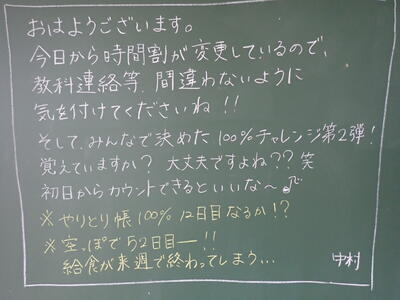 おはようございます。
今日から時間割が変更しているので、
教科連絡等、間違わないように
気を付けてくださいね!!
そして、みんなで決めた100%チャレンジ第2弾!
覚えていますか? 大丈夫ですよね?? 笑
初日からカウントできるといいな〜♪
※やりとり帳100% 12日目なるか!?
※空っぽで52日目ー!!
給食が来週で終わってしまう…
中村